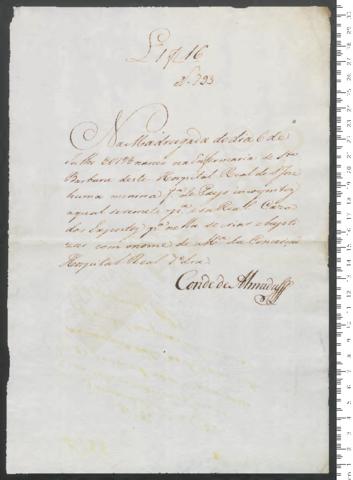 L.º 1 f 16
N.º 793
Na Madrugada do dia 6 de
Julho nasceo na Enfermaria de Sta
Barbara deste Hospital Real de S. Joze
huma menina fª de Pays incognitos
aqual se remete pª essa Real Caza
dos Expostos pª nella se criar e baptizar
com o nome de Mª da Conceição
Hospital Real Dia era
Conde de Almada